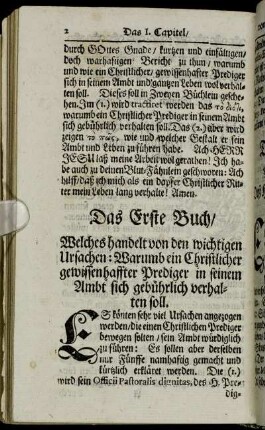 2 Das I. Capitel/
durch GOttes Gnade/ kurtzen und einfältigen/
doch warhafftigen Bericht zu thun/ warumb
und wie ein Christlicher/ gewissenhaffter Prediger
sich in seinem Ambt und gantzen Leben wol verhal-
ten soll. Dieses soll in Zweyen Büchlein gesche-
hen. Im (1.) wird tractiret werden das τὸ διότι,
warumb ein Christlicher Prediger in seinem Ambt
sich gebührlich verhalten soll. Das (2.) aber wird
zeigen τὸ πῶς, wie und welcher Gestalt er sein
Ambt und Leben zu führen habe. Ach HERR
JESU laß meine Arbeit wol gerathen! Ich ha-
be auch zu deinem Blut-Fähnlein geschworen: Ach
hilff/ daß ich mich als ein dapffer Christlicher Rit-
ter mein Leben lang verhalte! Amen.
Das Erste Buch/
Welches handelt von den wichtigen
Ursachen: Warumb ein Christlicher
gewissenhaffter Prediger in seinem
Ambt sich gebührlich verhal-
ten soll.
ES könten sehr viel Ursachen angezogen
werden/ die einen Christlichen Prediger
bewegen solten/ sein Ambt würdiglich
zu führen: Es sollen aber derselben
nur Fünffe namhafftig gemacht und
kürtzlich erkläret werden. Die (1.)
wird sein Officii Pastoralis dignitas, des H. Pre-
dig-